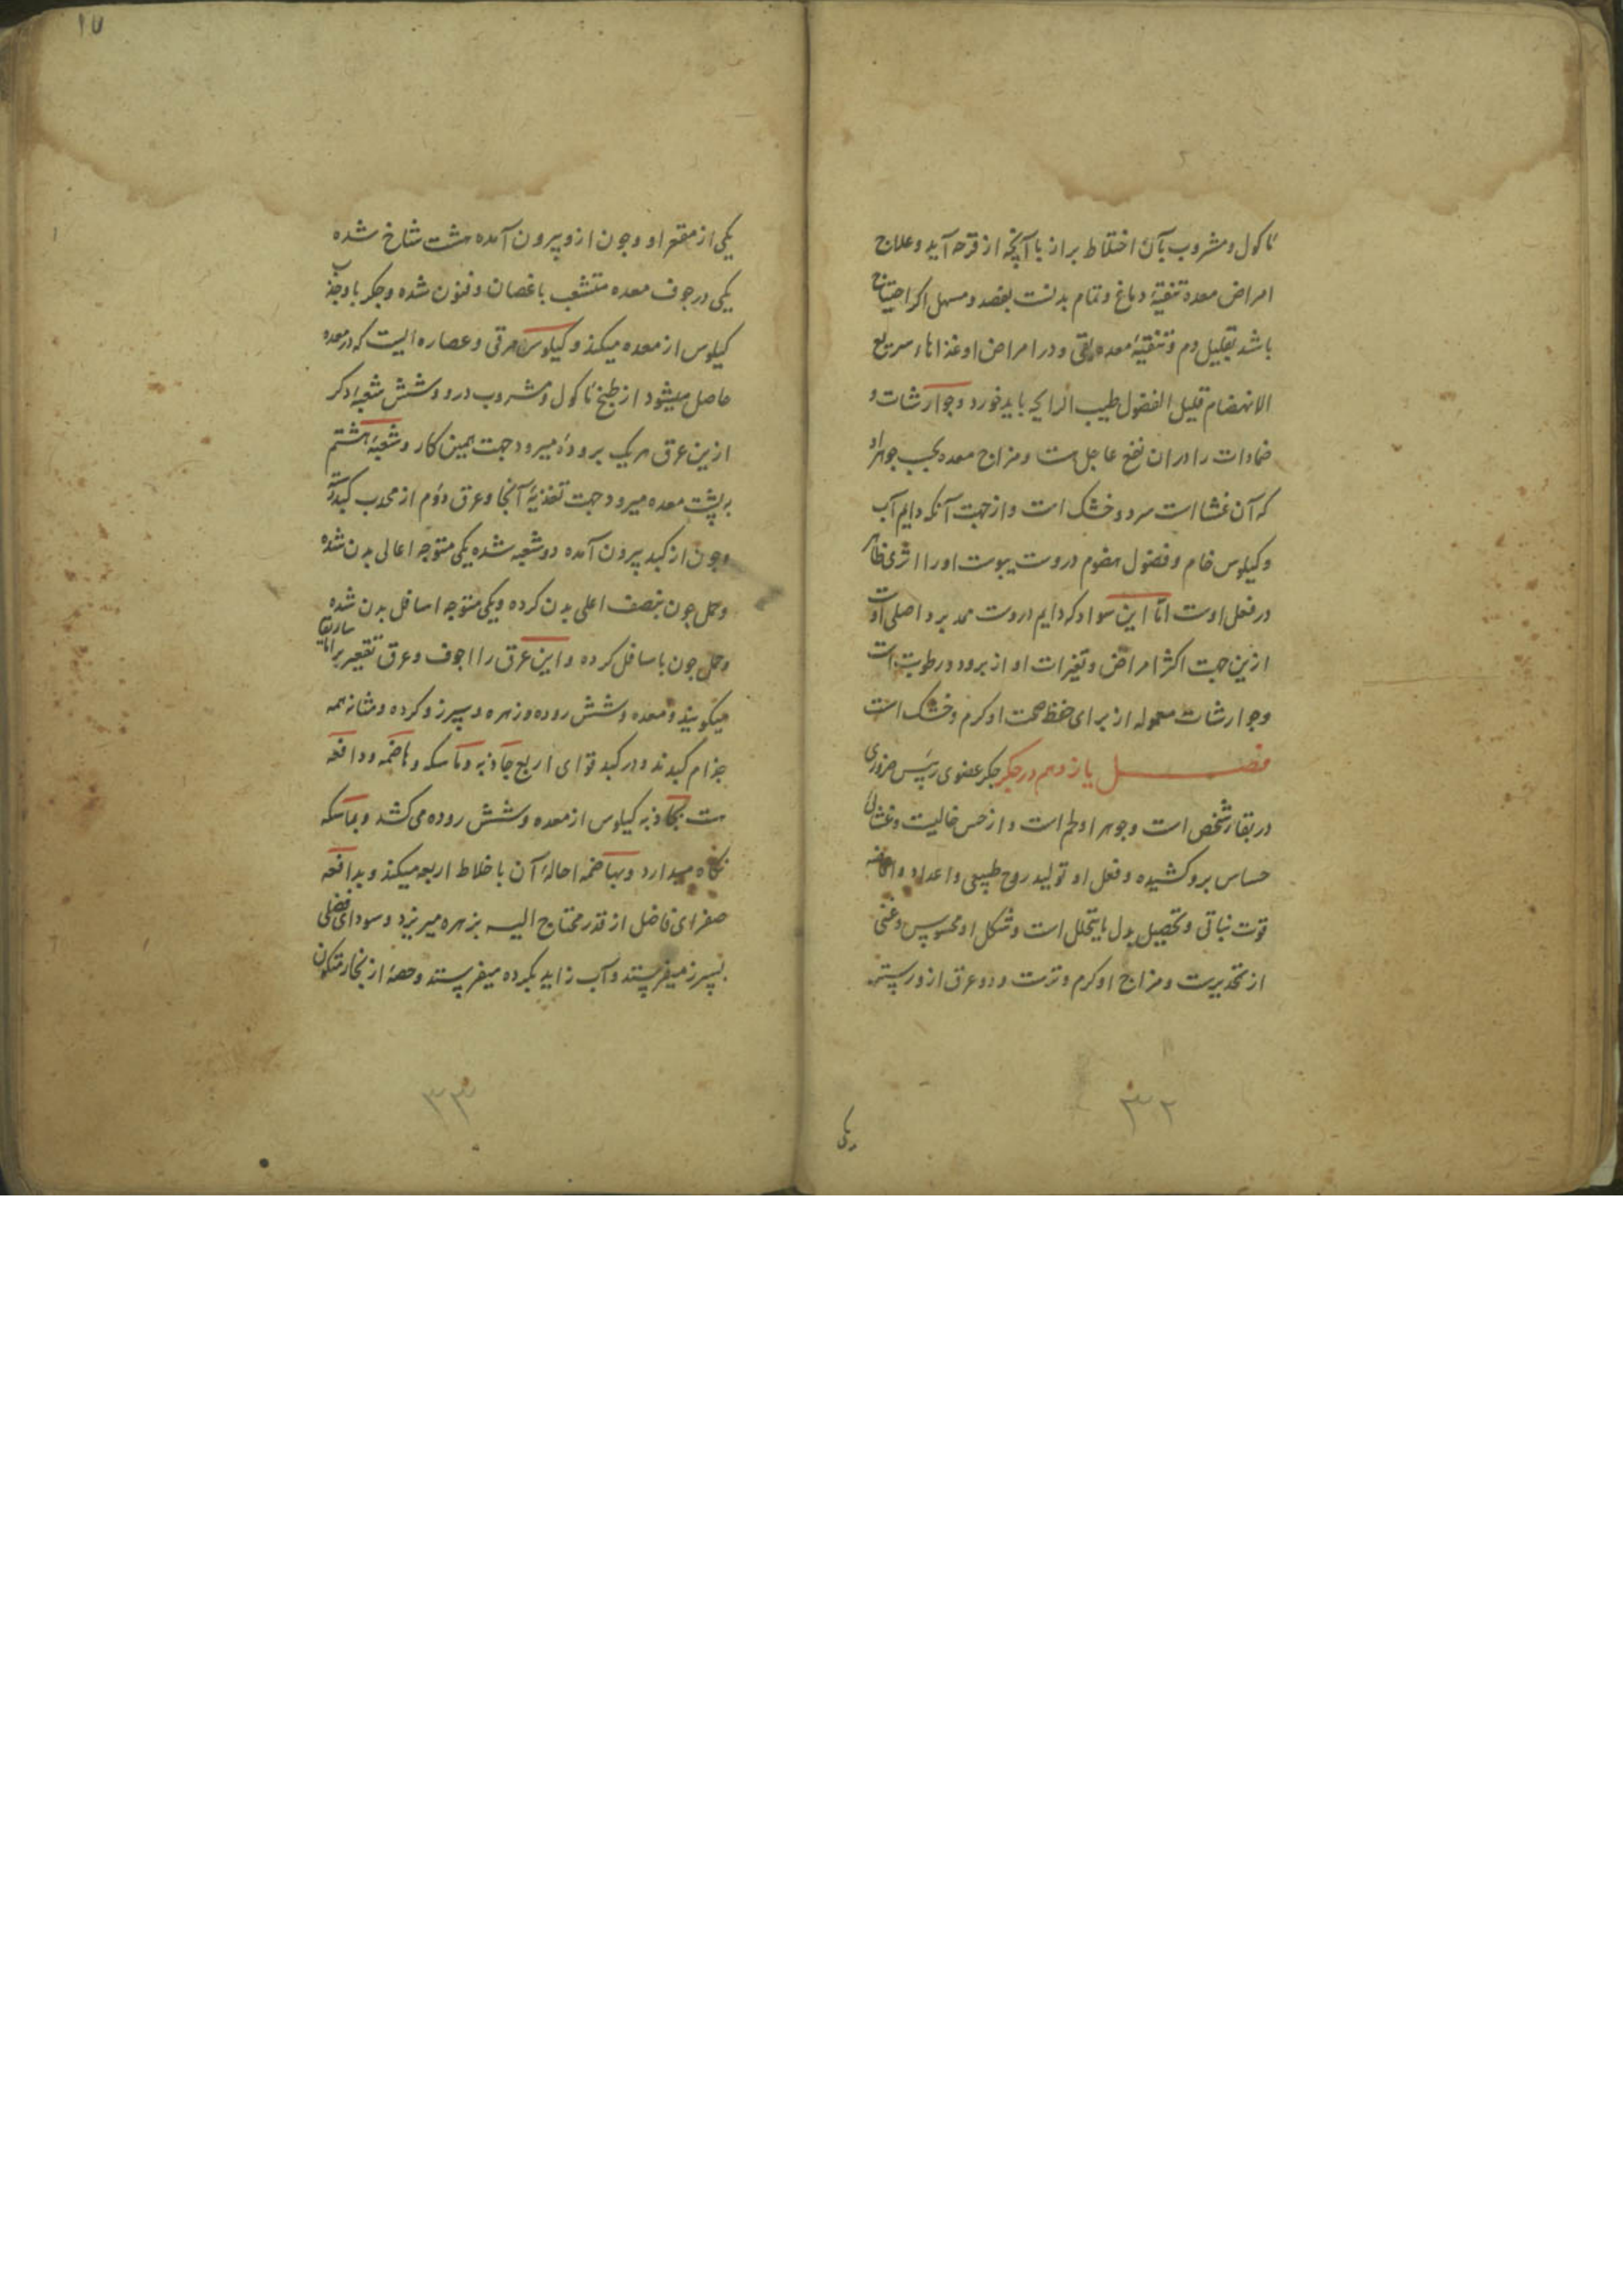 ماکول و مشروب بآن اختلاط براز باآنچه از قرحه آید و علاج
امراض معده تنقیهٔ دماغ و تمام بدنست بفصد و مسهل اکر احتیاج
باشد بتقلیل دم و تنقیهٔ معده بقی و در امراض او غذاهاء سریع
الانهضام قلیل الفضول طیب الرایحه باید خورد و جوارشات و
ضمادات را دران نفع عاجل هست و مزاج معده بحسب جوهر او
که آن غشا است سرد و خشک است و از جهت آنکه دایم آب
و کیلوس خام و فضول هضوم دروست یبوست او را اثری ظاهر
در فعل اوست اما این سواد که دایم دروست ممد برد اصلی اوست
ازین جهت اکثر امراض و تغیرات او از برودو رطوبت است
و جوارشات معموله از برای حفظ صحت او کرم و خشک است
فصل یازدهم در جکر جکر عضوی رئیس ضروری
در بقاء شخص است و جوهر او لحم است و از حس خالیست و غشای
حساس برو کشیده و فعل او تولید روح طبیعی و اعداد و افاضه
قوت نباتی و تحصیل بدل مایتحلل است و شکل او محسوس و غنی
از تحدیدست و مزاج او کرم و ترست و دو عرق ازو رسته
یکی
۳۲
۱۷
یکی از مقعر او و چون ازو بیرون آمده هشت شاخ شده
یکی در جوف معده متشعب باغصان و فنون شده و جکر باو جذب
کیلوس از معده میکند و کیلوس مرقی و عصاره ایست که در معده
حاصل میشود از طبخ ماکول و مشروب درو و شش شعبهٔ دکر
ازین عرق هریک برودهٔ میرود جهت همین کار و شعبهٔ هشتم
بر پشت معده میرود جهت تغذیهٔ آنجا و عرق دوم از محدب کبدرسته
و چون از کبد بیرون آمده دو شعبه شده یکی متوجه اعالی بدن شده
و حمل جون بنصف اعلی بدن کرده و یکی متوجه اسافل بدن شده
و حمل جون باسافل کرده و این عرق را اجوف و عرق تقعیر را ماساریقا
میکویند و معده و شش روده و زهره و سپرز و کرده و مثانه همه
خدام کبدند و در کبد قوای اربع جاذبه و ماسکه و هاضمه و دافعه
هست بجاذبه کیلوس از معده و شش روده می کشد و بماسکه
نکاه میدارد و بهاضمه احالهٔ آن باخلاط اربعه میکند و بدافعه
صفرای فاضل از قدر محتاج الیه بزهره میریزد و سودای فضلی
بسپرز میفرستد و آب زاید بکرده میفرستد و حصهٔ از بخار متکون
۳۳